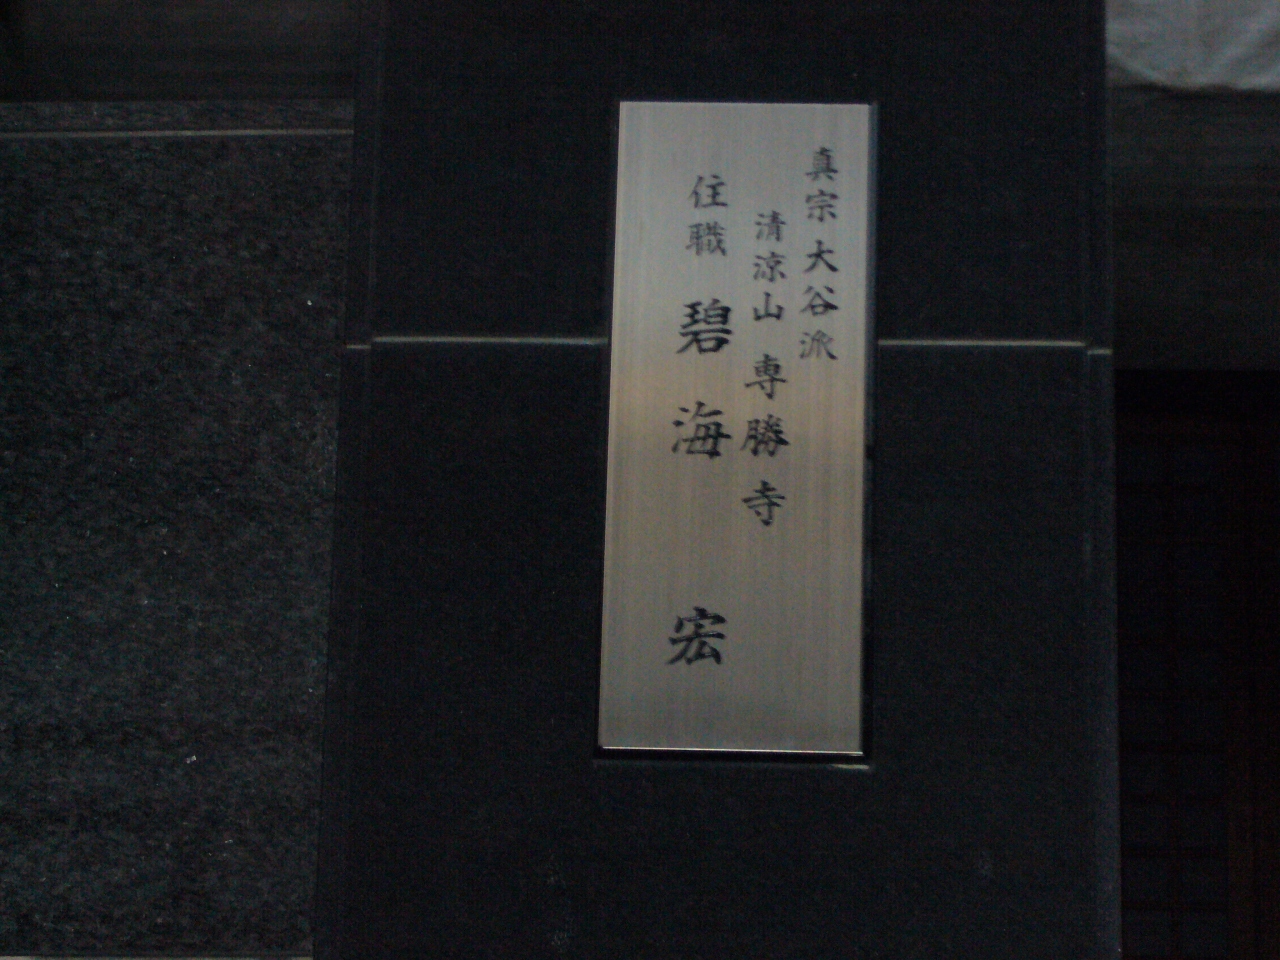 真宗大谷派
清涼山 専勝寺
住職 碧海 宏